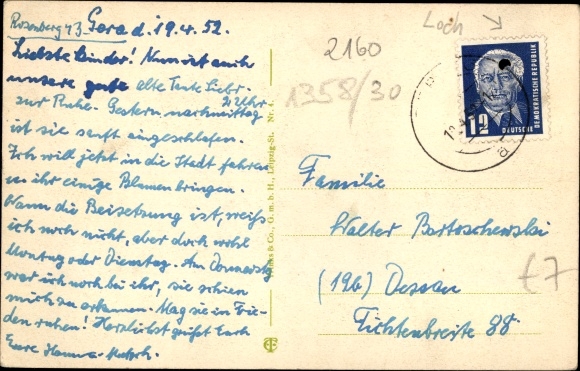 Rosenberg 43 Gera d. 19.4.52.
Liebste Kinder! Nun ist auch
unsere gute alte Tante Liesbr.
zur Ruhe. Gestern nachmittag
2 Uhr
ist sie sanft eingeschlafen.
Ich will jetzt in die Stadt fahren
u. ihr einige Blumen bringen.
Wann die Beisetzung ist, weiß
ich noch nicht, aber doch wohl
Montag oder Dienstag. Am Donnerstg
war ich noch bei ihr, sie schien
mich zu erkennen. Mag sie in Frie-
den ruhen! Herzlichst grüßt Euch
Eure Hanna-
& Co., G. m. b. H., Leipzig-St. Nr. 4.
Loch
2160
1358/30
12
DEUTSCHE
DEMOKRATISCHE REPUBLIK
Familie
Walter Bartoschewski
(19b) Dessau
Fichtenbreite 88.
£7